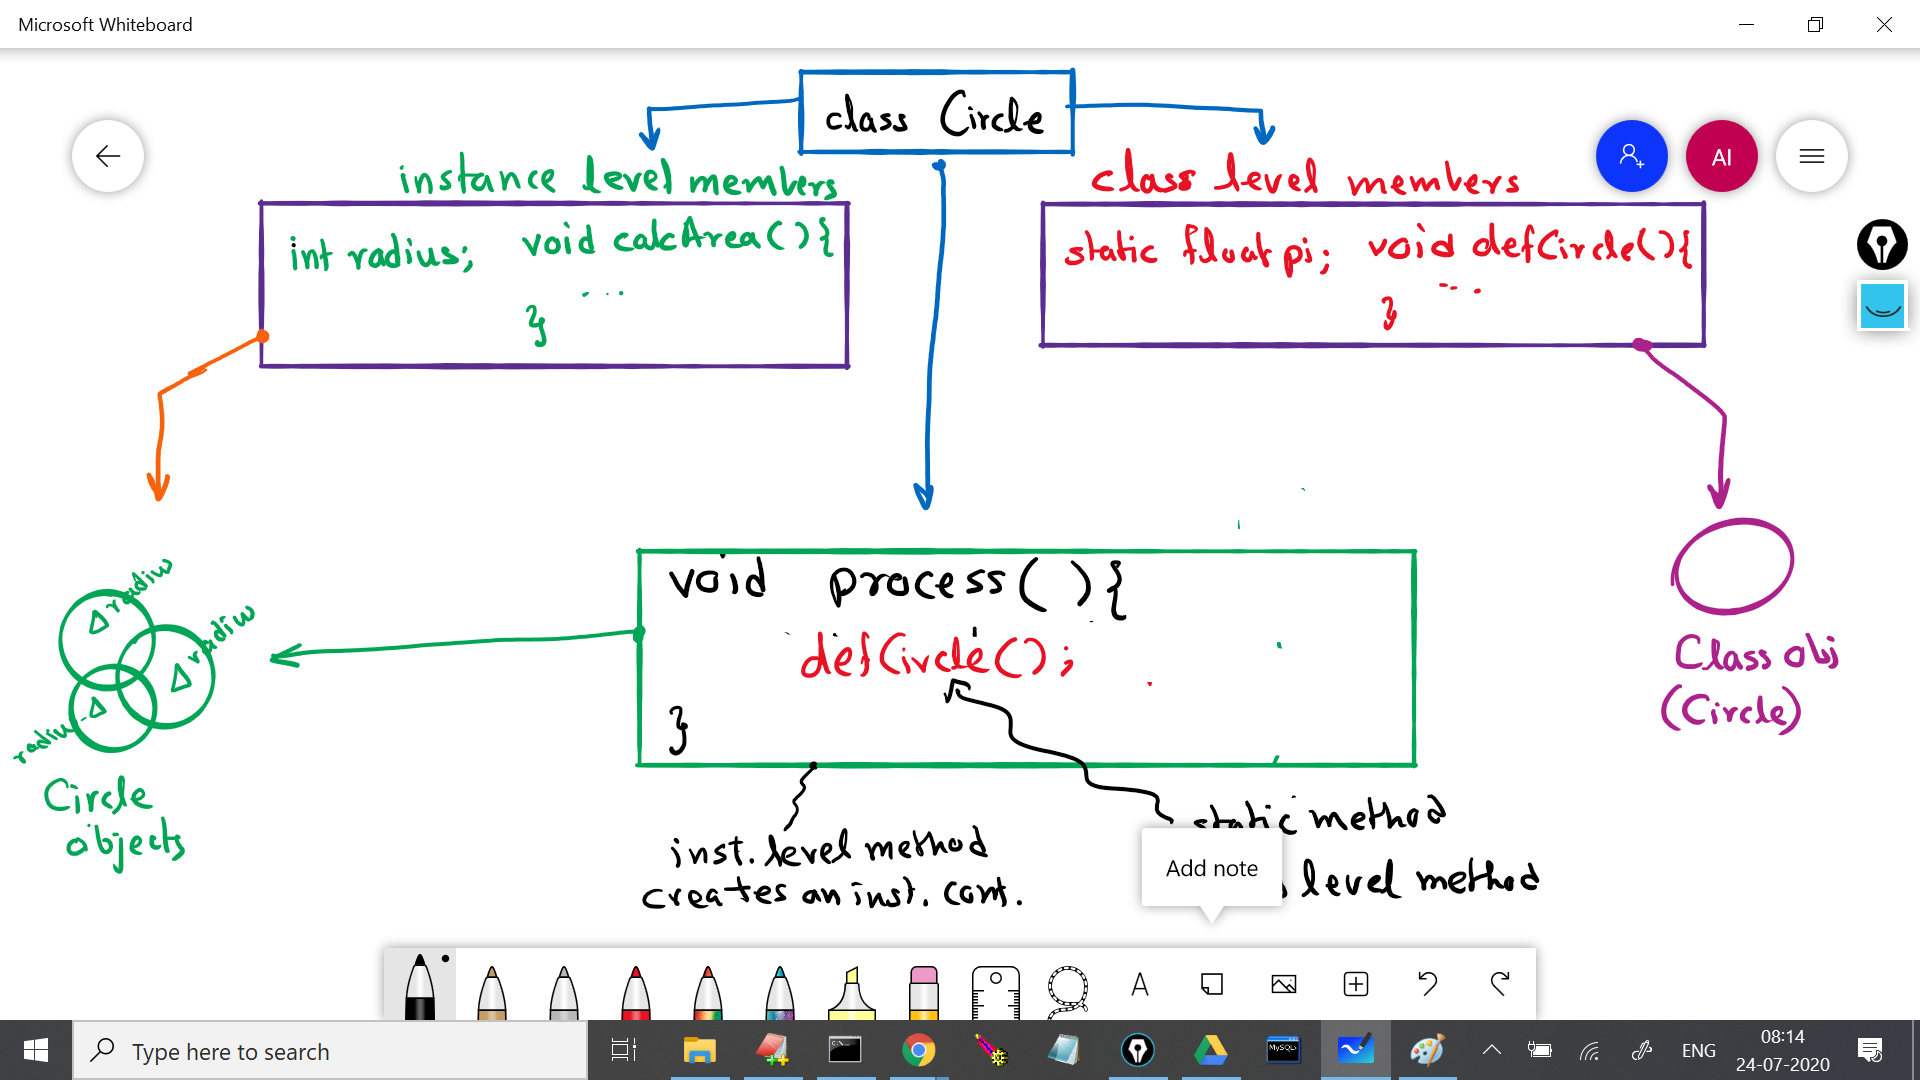 Microsoft Whiteboard
class Circle
AI
instance level members
class level members
int radius; void calcArea(){
...
}
static float pi; void defCircle(){
...
}
void process(){
defCircle();
}
radius
radius
radius
Circle
objects
Class obj
(Circle)
inst. level method
creates an inst. cont.
static method
level method
Add note
A
Type here to search
C:\
MySQL
ENG
08:14
24-07-2020